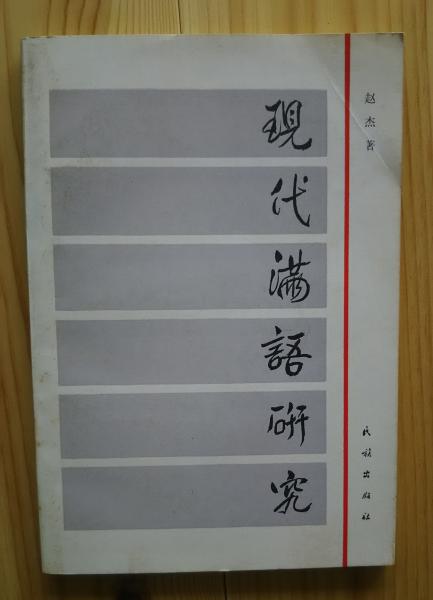 赵杰著
現代满語研究
民族出版社